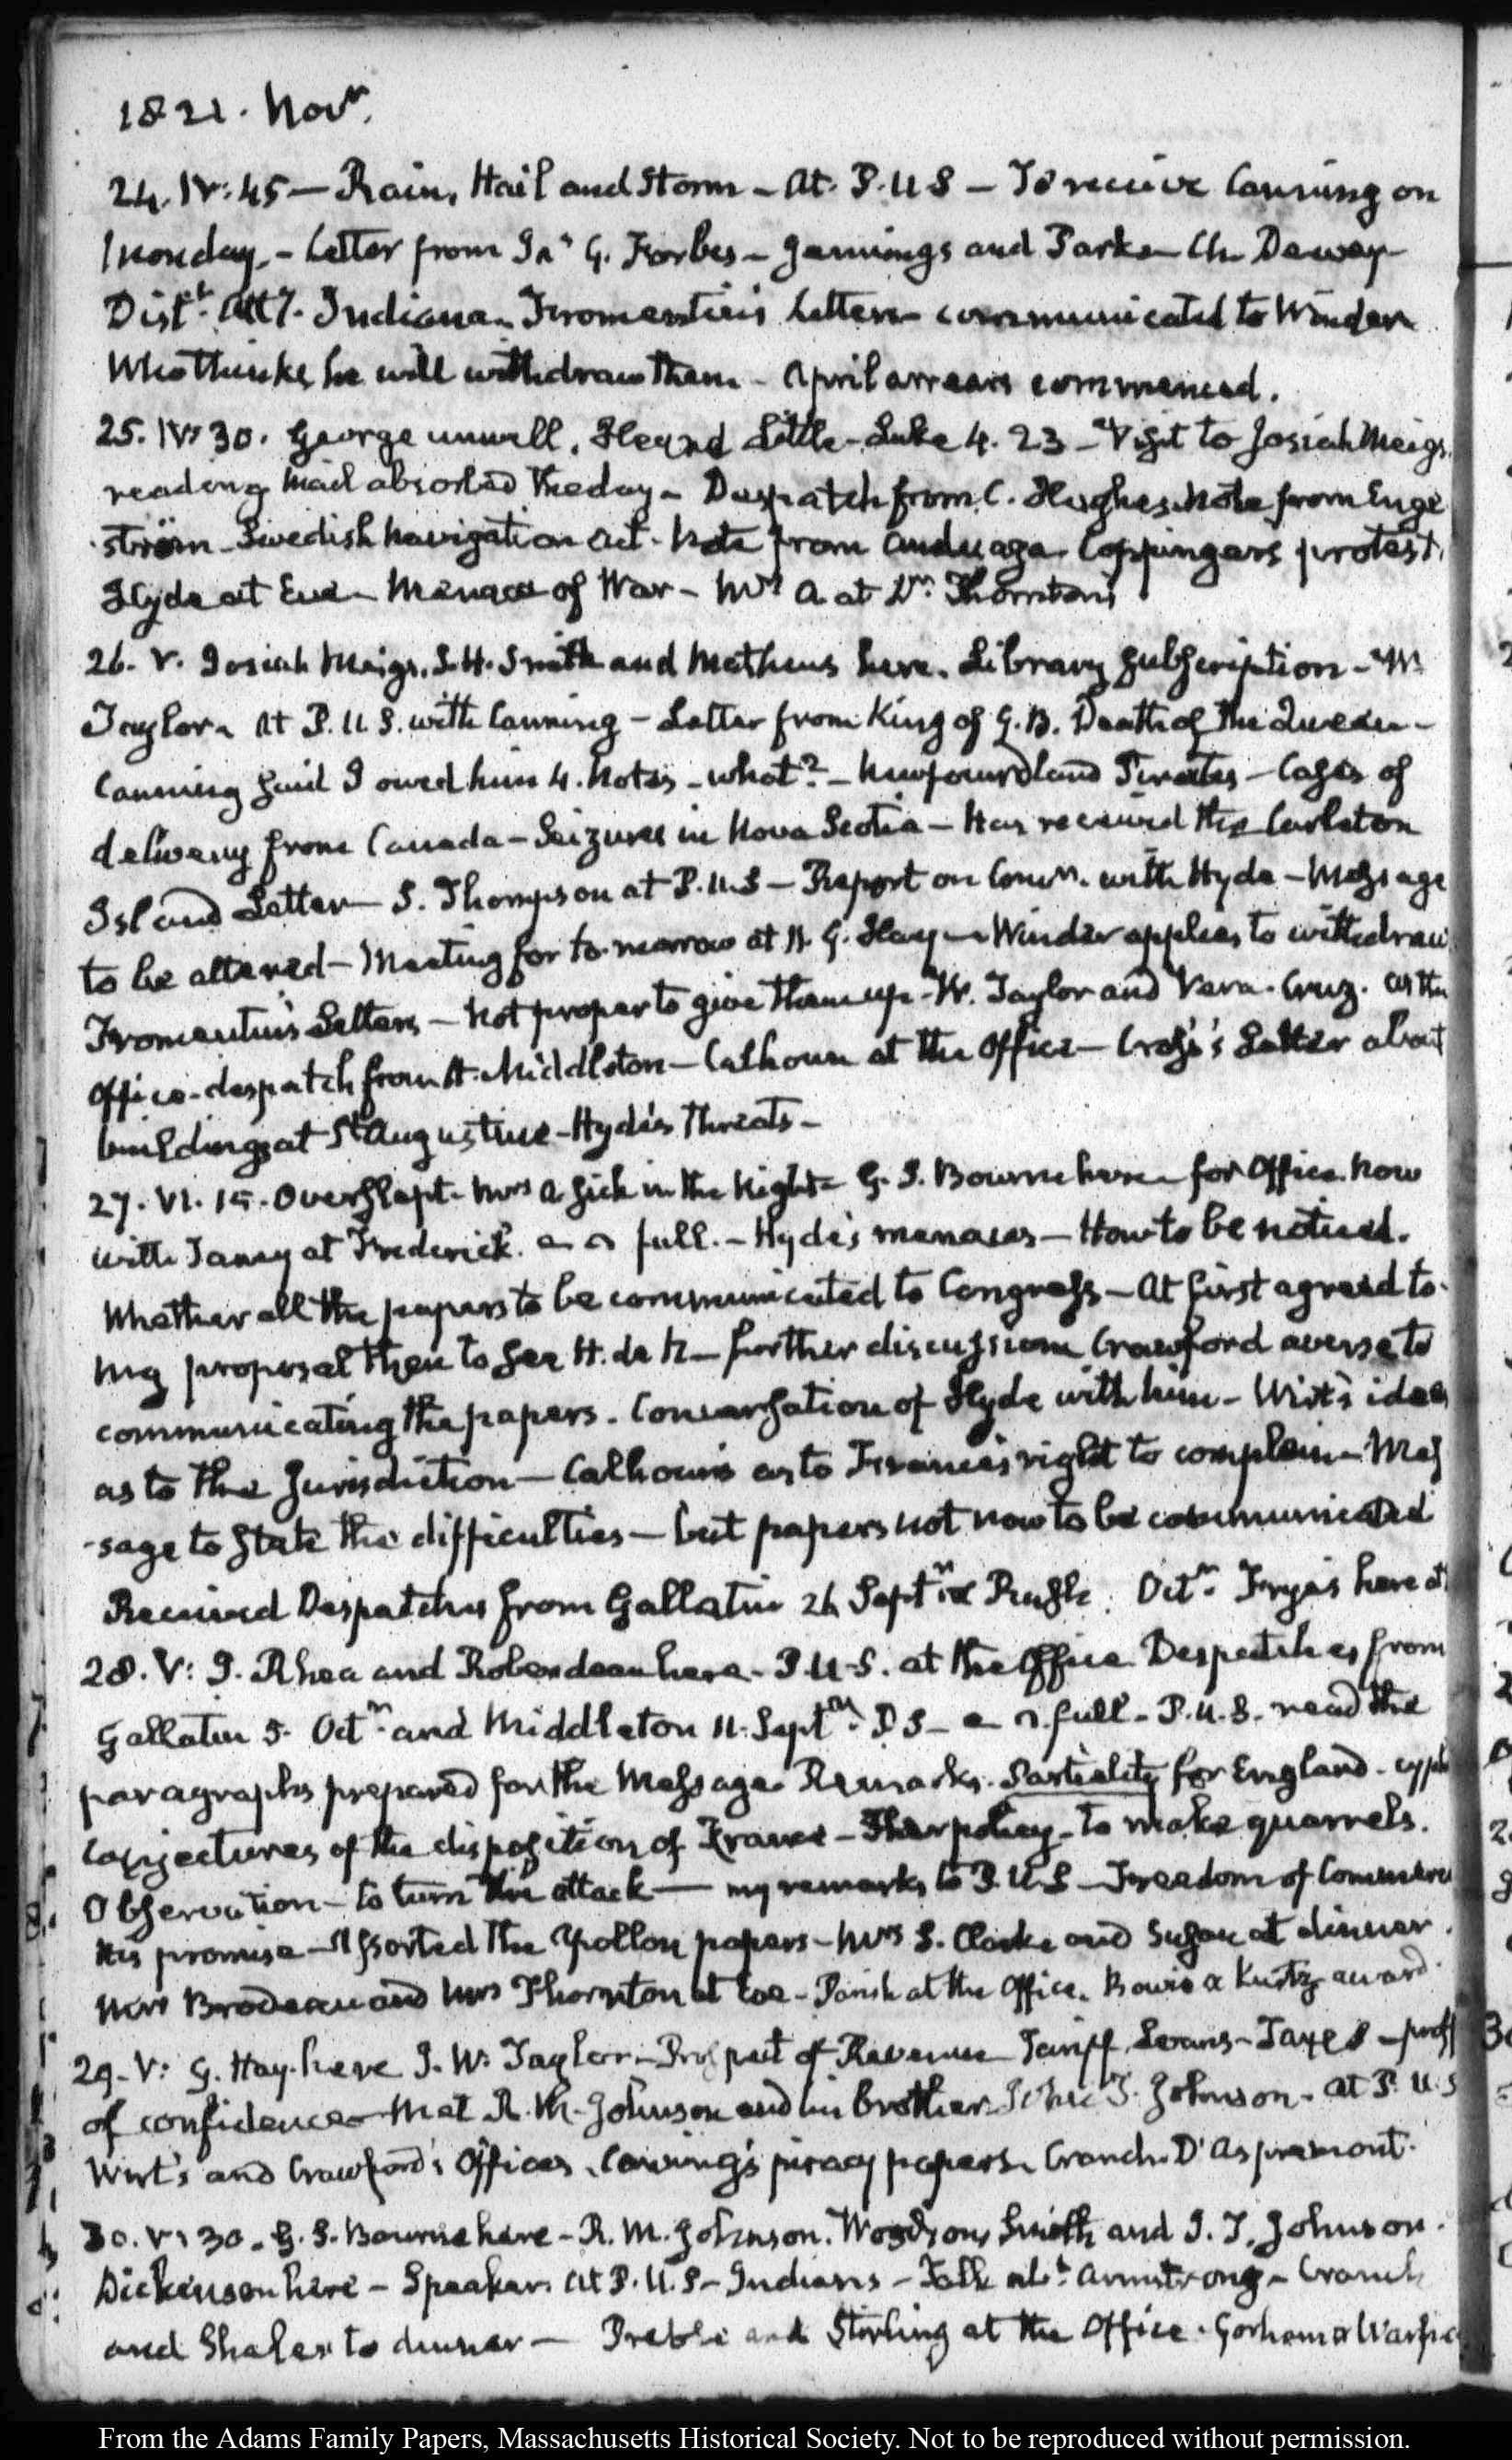 1821. Novr.
24. IV:45 — Rain, Hail and Storm — At P.U.S — To receive Canning on
Monday. — Letter from Jn. G. Forbes — Jennings and Parke — Ch. Dewey —
Distt. Atty. Indiana — Fromentin's Letters communicated to Winder
Who thinks he will withdraw them — April arrears commenced.
25. IV:30. George unwell. Heard Little — Luke 4. 23 — Visit to Josiah Meigs.
reading Mail absorbed the day — Despatch from C. Hughes. Note from Enge
ström — Swedish Navigation Act. Note from Anduaga. Coppingers protest.
Hyde at Eve — Menace of War — Mrs A. at Dr. Thornton's
26. V. Josiah Meigs. S. H. Smith and Mathews here. Library Subscription — W.
Taylor. At P.U.S. with Canning — Letter from King of G.B. Death of the Queen —
Canning said I owed him 4. Notes — what? — Newfoundland Pirates — Cases of
delivery from Canada — Seizures in Nova Scotia — Has received the Carleton
Island Letter — S. Thompson at P.U.S — Report on Convn. with Hyde — Message
to be altered — Meeting for to-morrow at 11. G. Hay — Winder applies to withdraw
Fromentin's Letters — Not proper to give them up — W. Taylor and Vera-Cruz. At the
Office — despatch from H. Middleton — Calhoun at the Office — Letter about
buildings at St Augustine — Hyde's threats —
27. VI. 15. Overslept. Mrs A sick in the Night — G. S. Bourne here — for Office. Now
with Taney at Frederick. full. — Hyde's menaces — How to be noticed.
Whether all the papers to be communicated to Congress — At first agreed to
my proposal then to see H. de N — further discussion Crawford averse to
communicating the papers. Conversation of Hyde with him — Wirt's ideas
as to the Jurisdiction — Calhoun's as to France's right to complain — Mes
-sage to state the difficulties — but papers not now to be communicated
Received Despatches from Gallatin 26 Septr. & Rush. Octr. Frye's here
28. V: J. Rhea and Roberdeau here — P.U.S. at the Office Despatches from
Gallatin 5. Octr. and Middleton 11. Septr. full — P.U.S. read the
paragraphs prepared for the Message. Remarks. Partiality for England.
Conjectures of the disposition of France — Their policy — to make quarrels.
Observation — to turn the attack — my remarks to P.U.S — Freedom of Commerce
his promise — Assorted the Apollon papers — Mrs S. Clarke and Susan at dinner.
Mrs Brodeau and Mrs Thornton at tea — Parish at the Office. Bowie & Kurtz award.
29. V: G. Hay here J. W. Taylor — Prospect of Revenue Tariff Loans — Taxes
of confidence — Met R. M. Johnson and his brother John T. Johnson. At P.U.S
Wirt's and Crawford's Offices. Canning's piracy papers. Cranch. D'Aspremont.
30. V: 30. G. S. Bourne here — R. M. Johnson. Woodson, Smith and J. T. Johnson.
Dickenson here — Speaker. At P.U.S — Indians — Talk abt. Armstrong — Cranch
and Shaler to dinner — Preble and Storling at the Office. Gorham &
From the Adams Family Papers, Massachusetts Historical Society. Not to be reproduced without permission.